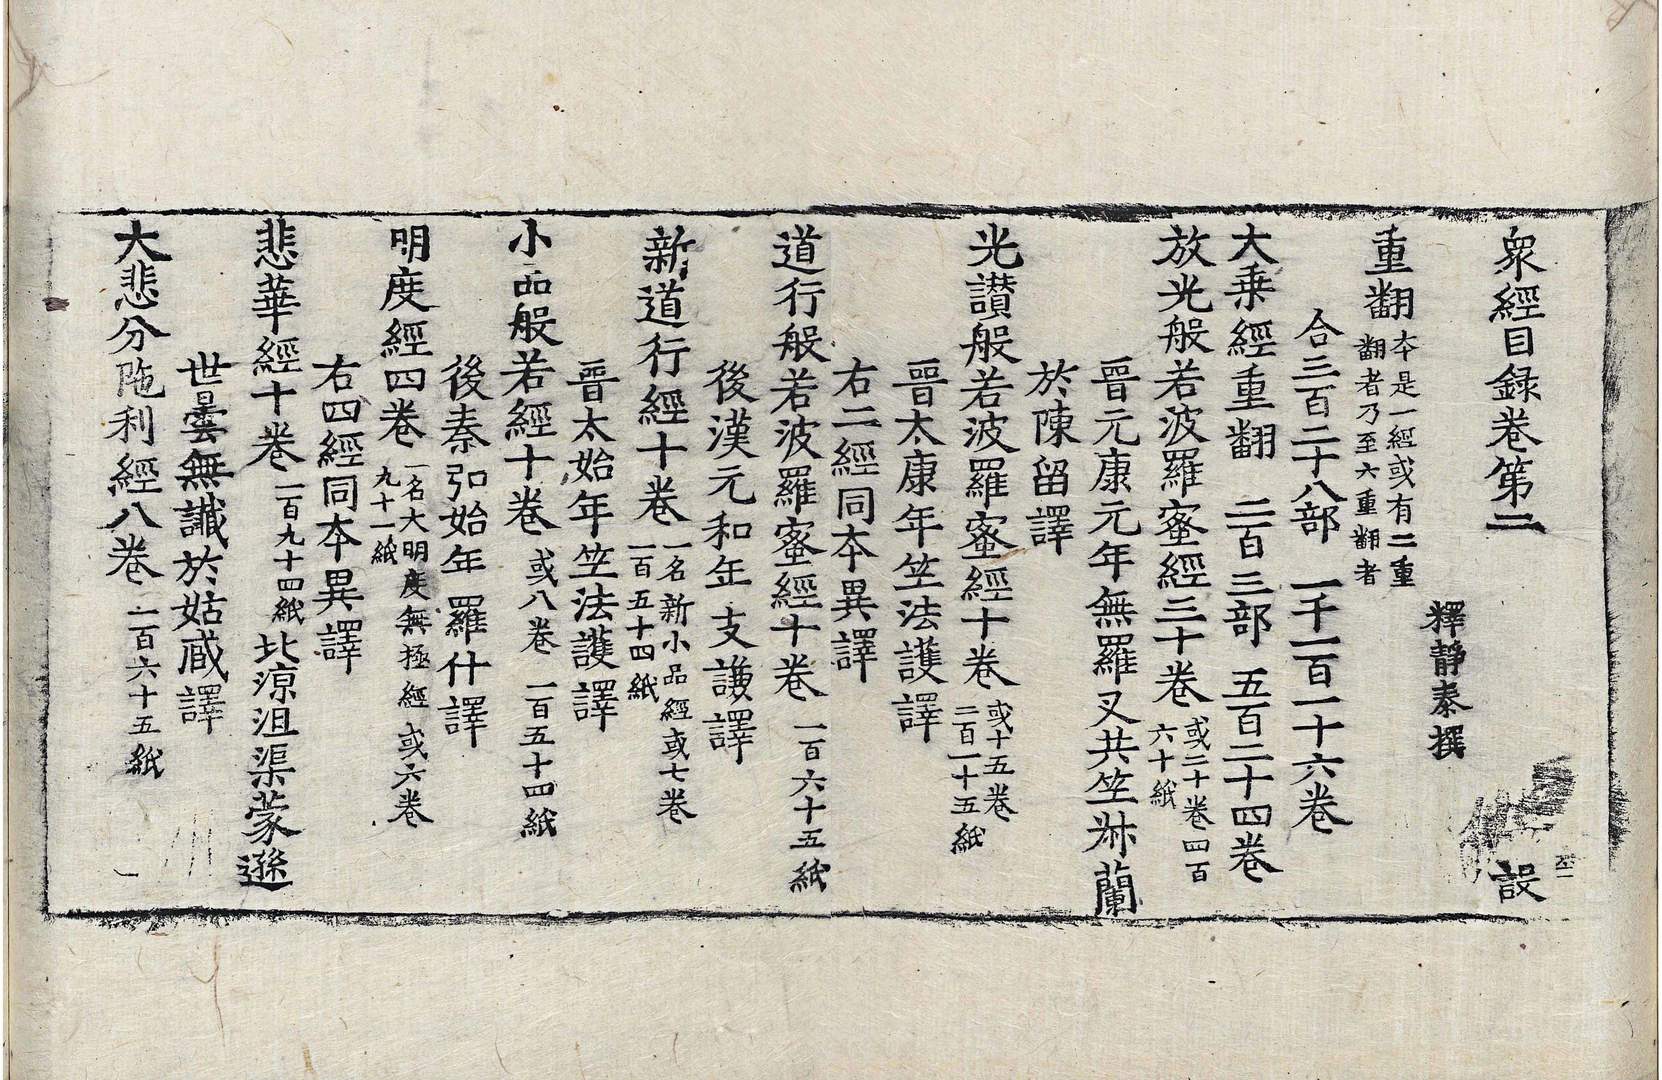 衆經目録卷第二　設
釋靜泰撰
重翻 本是一經或有二重翻者乃至六重翻者
合三百二十八部　一千一百一十六卷
大乗經重翻　二百三部　五百二十四卷
放光般若波羅蜜經三十卷 或二十卷四百六十紙
晉元康元年無羅叉共竺㭍蘭
於陳留譯
光讃般若波羅蜜經十卷 或十五卷二百一十五紙
晉太康年竺法護譯
右二經同本異譯
道行般若波羅蜜經十卷 一百六十五紙
後漢元和年支謙譯
新道行經十卷 一名新小品經或七卷一百五十四紙
晉太始年竺法護譯
小品般若經十卷 或八卷 一百五十四紙
後秦弘始年羅什譯
明度經四卷 一名大明度無極經或六卷九十一紙
右四經同本異譯
悲華經十卷 一百九十四紙 北涼沮渠蒙遜
世曇無讖於姑臧譯
大悲分陁利經八卷 一百六十五紙